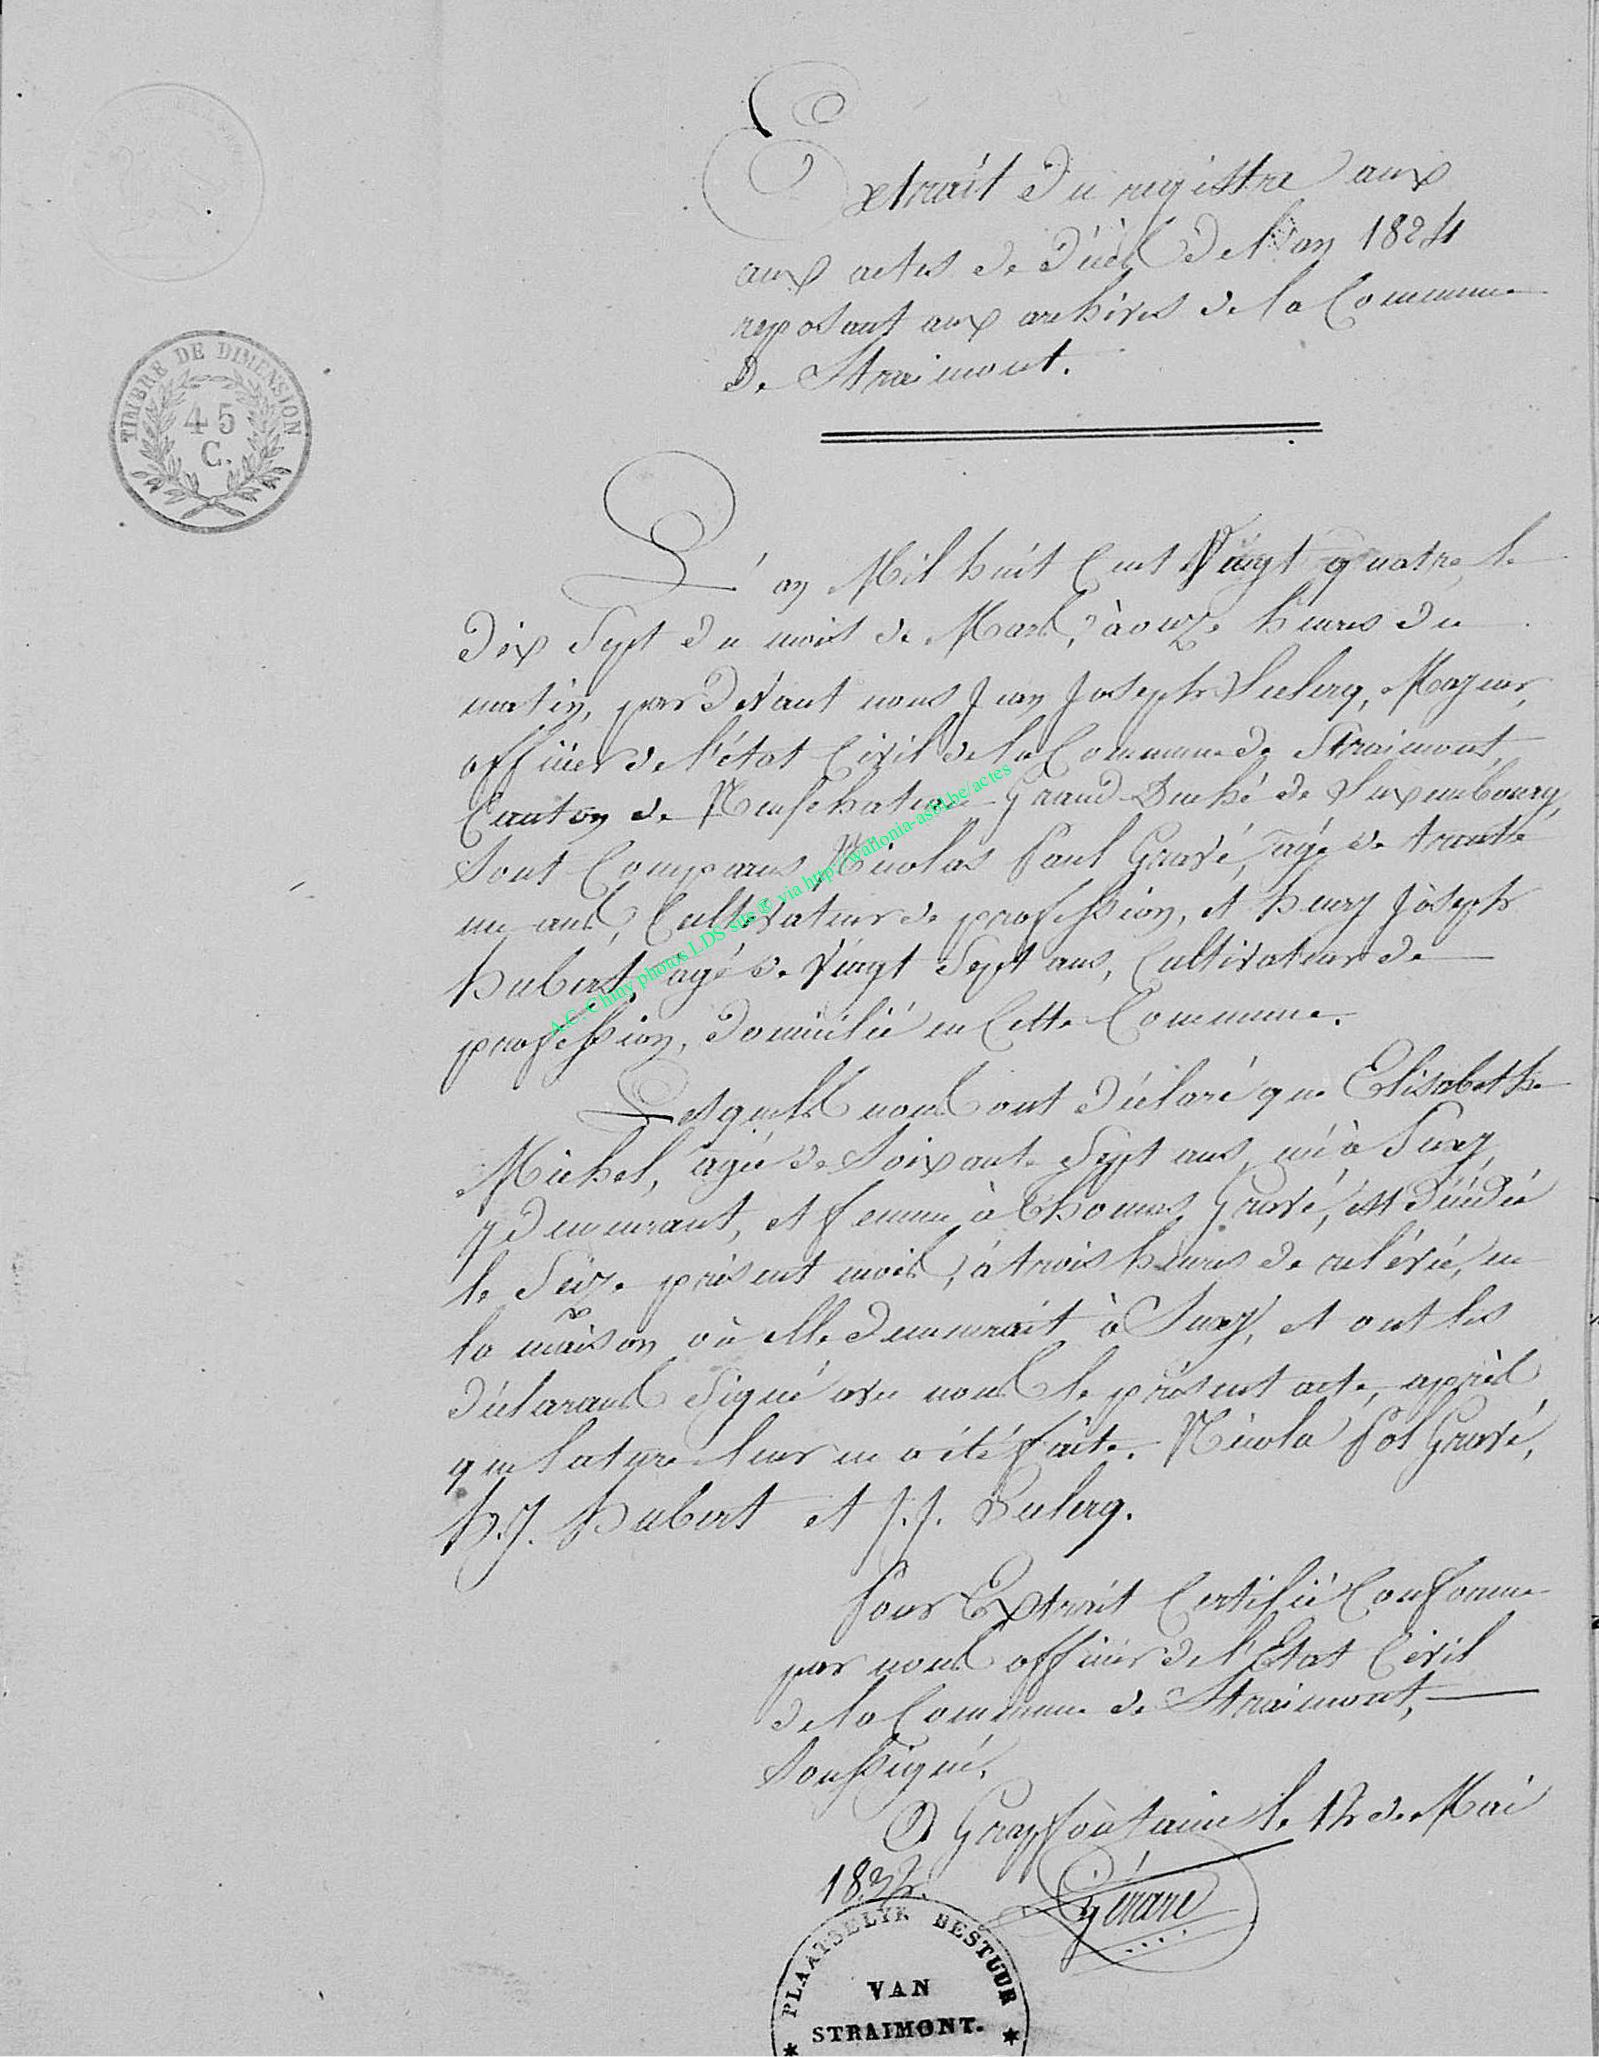 Extrait du registre aux
aux actes de décès de l'an 1824
reposant aux archives de la Commune
de Straimont.
TIMBRE DE DIMENSION
45
C.
L'an Mil huit Cent Vingt quatre, le
dix Sept du mois de Mars, à onze heures du
matin, par devant nous Jean Joseph Leclerq, Mayeur,
officier de l'état Civil de la Commune de Straimont,
Canton de Neufchateau Grand Duché de Luxembourg,
Sont Comparus Nicolas Paul Gravé, âgé de trente
un ans, Cultivateur de profession, et henry Joseph
hubert, agé de Vingt Sept ans, Cultivateur de
profession, domicilié en Cette Commune.
A.C. Chiny photos LDS site & via http://wallonia-asbl.be/actes
Lesquels nous ont déclaré que Elisabethe
Michel, agée de Soixante Sept ans, née à Suxy
y demeurant, et femme à Thomas Gravé, est décédée
le Seize présent mois, à trois heures de relévée, en
la maison où elle demeurait à Suxy, et ont les
déclarans Signé avec nous le présent acte, après
que lecture leur en a été faite. Nicola Pol Gravé,
h. J. hubert et J. J. Leclerq.
Pour Extrait Certifié Conforme
par nous officier de l'Etat Civil
de la Commune de Straimont,
Soussigné,
A Grapfontaine le 12 de Mai
1832.
Gérard
PLAATSELYK BESTUUR
VAN
STRAIMONT.